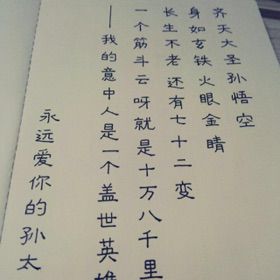 齐天大圣孙悟空
身如玄铁火眼金睛
长生不老还有七十二变
一个筋斗云呀就是十万八千里
——我的意中人是一个盖世英雄
永远爱你的孙太